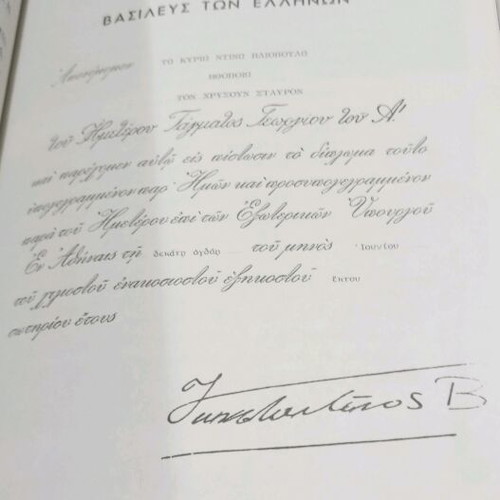 ΒΑΣΙΛΕΥΣ ΤΩΝ ΕΛΛΗΝΩΝ
Ἀπονέμομεν ΤΩ ΚΥΡΙΩ ΝΤΙΝΩ ΗΛΙΟΠΟΥΛΩ
ΗΘΟΠΟΙΩ
ΤΟΝ ΧΡΥΣΟΥΝ ΣΤΑΥΡΟΝ
τοῦ Ἡμετέρου Τάγματος Γεωργίου τοῦ Α'
καὶ παρέχομεν αὐτῷ εἰς πίστωσιν τὸ δίπλωμα τοῦτο
ὑπογεγραμμένον παρ' Ἡμῶν καὶ προσυπογεγραμμένον
παρὰ τοῦ Ἡμετέρου ἐπὶ τῶν Ἐξωτερικῶν Ὑπουργοῦ
Ἐν Ἀθήναις τῇ δεκάτῃ ὀγδόῃ τοῦ μηνὸς Ἰουνίου
τοῦ χιλιοστοῦ ἐνακοσιοστοῦ ἑξηκοστοῦ ἕκτου
σωτηρίου ἔτους
Κωνσταντῖνος Β